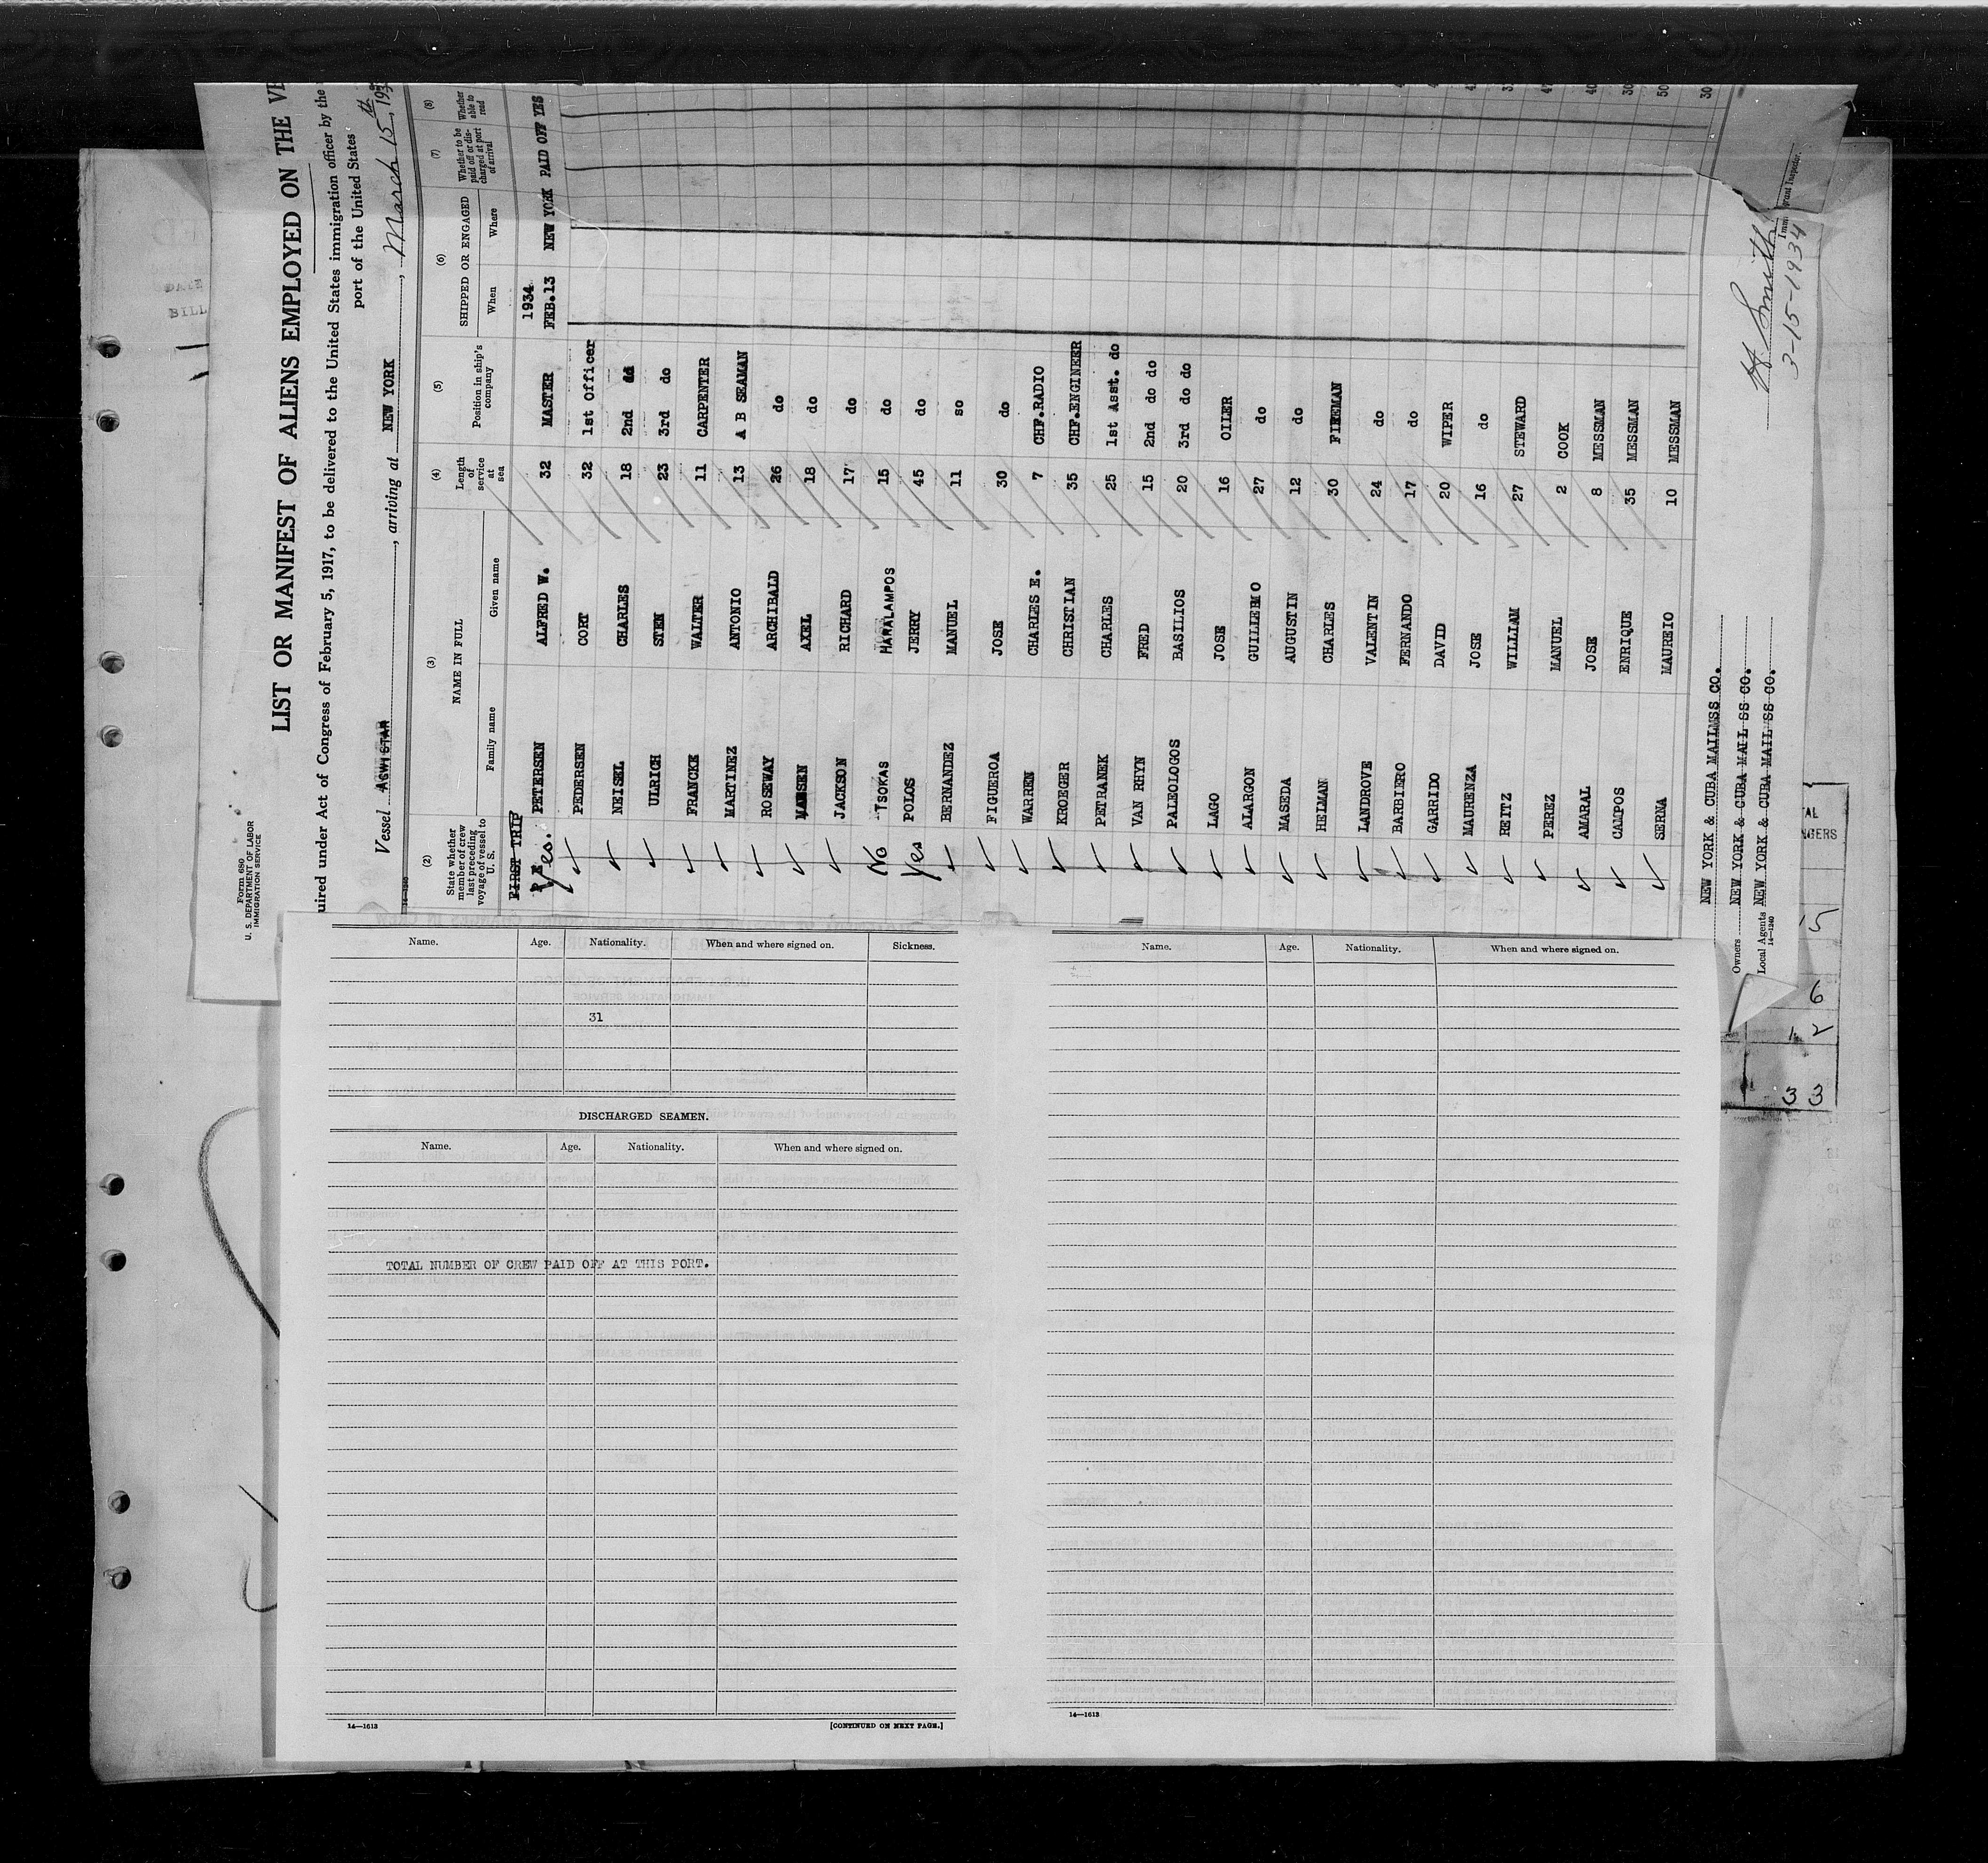 Form 680
U. S. DEPARTMENT OF LABOR
IMMIGRATION SERVICE
LIST OR MANIFEST OF ALIENS EMPLOYED ON THE
uired under Act of Congress of February 5, 1917, to be delivered to the United States immigration officer by the
port of the United States
Vessel AGWISTAR, arriving at NEW YORK, March 15th, 193
14—1240
(2) (3) (4) (5) (6) (7) (8)
State whether member of crew last preceding voyage of vessel to U. S.
NAME IN FULL
Family name Given name
Length of service at sea
Position in ship's company
SHIPPED OR ENGAGED
When Where
Whether to be paid off or discharged at port of arrival
Whether able to read
FIRST TRIP 1934
Yes. PETERSEN ALFRED W. 32 MASTER FEB.13 NEW YORK PAID OFF YES
✓ PEDERSEN CORT 32 1st Officer
✓ NEISEL CHARLES 18 2nd do
✓ ULRICH STEN 23 3rd do
✓ FRANCKE WALTER 11 CARPENTER
✓ MARTINEZ ANTONIO 13 A B SEAMAN
✓ ROSEWAY ARCHIBALD 26 do
✓ AXEL 18 do
✓ JACKSON RICHARD 17 do
No TSOKAS HARALAMPOS 15 do
Yes POLOS JERRY 45 do
✓ BERNANDEZ MANUEL 11 so
✓ FIGUEROA JOSE 30 do
✓ WARREN CHARLES E. 7 CHF.RADIO
✓ KROEGER CHRISTIAN 35 CHF.ENGINEER
✓ PETRANEK CHARLES 25 1st Asst. do
✓ VAN RHYN FRED 15 2nd do do
✓ PALEOLOGOS BASILIOS 20 3rd do do
✓ LAGO JOSE 16 OILER
✓ ALARGON GUILLEMO 27 do
✓ MASEDA AUGUSTIN 12 do
✓ HELMAN CHARLES 30 FIREMAN
✓ LANDROVE VALENTIN 24 do
✓ BARBIERO FERNANDO 17 do
✓ GARRIDO DAVID 20 WIPER
✓ MAURENZA JOSE 16 do
✓ REITZ WILLIAM 27 STEWARD
✓ PEREZ MANUEL 2 COOK
✓ AMARAL JOSE 8 MESSMAN
✓ CAMPOS ENRIQUE 35 MESSMAN
✓ SERNA MAUREIO 10 MESSMAN
NEW YORK & CUBA MAILMSS CO.
Owners NEW YORK & CUBA MAIL SS CO.
Local Agents NEW YORK & CUBA MAIL SS CO.
14—1240
Smith
Immigrant Inspector.
3-15-1934
Name. Age. Nationality. When and where signed on. Sickness.
31
DISCHARGED SEAMEN.
Name. Age. Nationality. When and where signed on.
TOTAL NUMBER OF CREW PAID OFF AT THIS PORT.
14—1613 [CONTINUED ON NEXT PAGE.]
Name. Age. Nationality. When and where signed on.
14—1613
TAL
NGERS
5
6
12
33
BILL